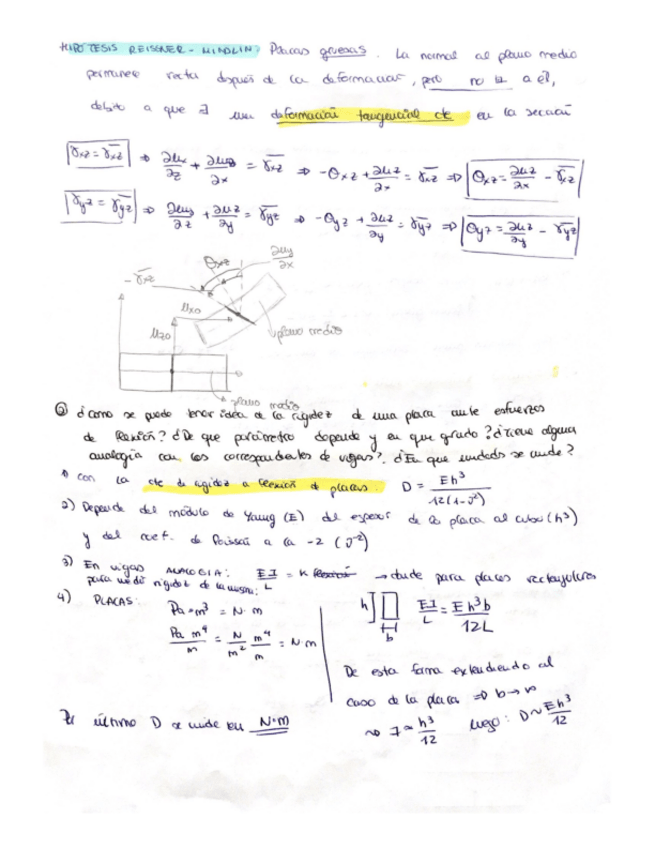 HIPÓTESIS REISSNER - MINDLIN: Placas gruesas. La normal al plano medio
permanece recta después de la deformación, pero no ⊥ a él,
debido a que ∃ una deformación tangencial cte en la sección
γxz = γ̄xz ⇒ ∂ux/∂z + ∂uz/∂x = γ̄xz ⇒ -θxz + ∂uz/∂x = γ̄xz ⇒ θxz = ∂uz/∂x - γ̄xz
γyz = γ̄yz ⇒ ∂uy/∂z + ∂uz/∂y = γ̄yz ⇒ -θyz + ∂uz/∂y = γ̄yz ⇒ θyz = ∂uz/∂y - γ̄yz
θxz
∂uy/∂x
- γ̄xz
uxo
uzo
plano medio
plano medio
6 ¿Cómo se puede tener idea de la rigidez de una placa ante esfuerzos
de flexión? ¿De que parámetro depende y en que grado? ¿Tiene alguna
analogía con los correspondientes de vigas? ¿En que unidades se mide?
1) con la cte de rigidez a flexión de placas. D = Eh³/12(1-ν²)
2) Depende del módulo de Young (E) del espesor de la placa al cubo (h³)
y del coef. de Poisson a la -2 (ν⁻²)
3) En vigas ANALOGIA: EI/L = K → dude para placas rectangulares
para medir rigidez de la misma:
4) PLACAS: Pa · m³ = N · m
Pa m⁴/m = N/m² m⁴/m = N·m
h b EI/L = Eh³b/12L
De esta forma extendiendo al
caso de la placa ⇒ b → ∞
⇒ I ≈ h³/12 luego: D ~ Eh³/12
Por último D se mide en N·m